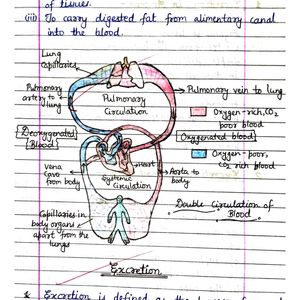 of tissues.
(iii) To carry digested fat from alimentary canal
into the blood.
Lung
Capillaries
Pulmonary
artery to
lung
Pulmonary
Circulation
Pulmonary vein to lung
Oxygen-rich, CO2
poor blood
Deoxygenated
Blood
Oxygenated blood
Oxygen-poor,
CO2 rich blood
Vena
Cava
from body
Heart
Systemic
Circulation
Aorta to
body
Double Circulation of
Blood
Capillaries in
body organs
apart from the
lungs
Excretion
* Excretion is defined as the